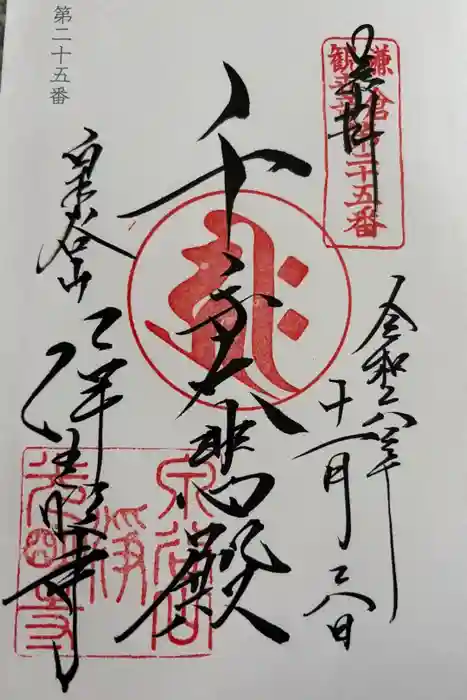 第二十五番
奉拝
鎌倉
観音第二十五番
令和六年
十一月六日
千手大悲殿
泉谷山
浄光明寺
泉谷山
浄
光明寺